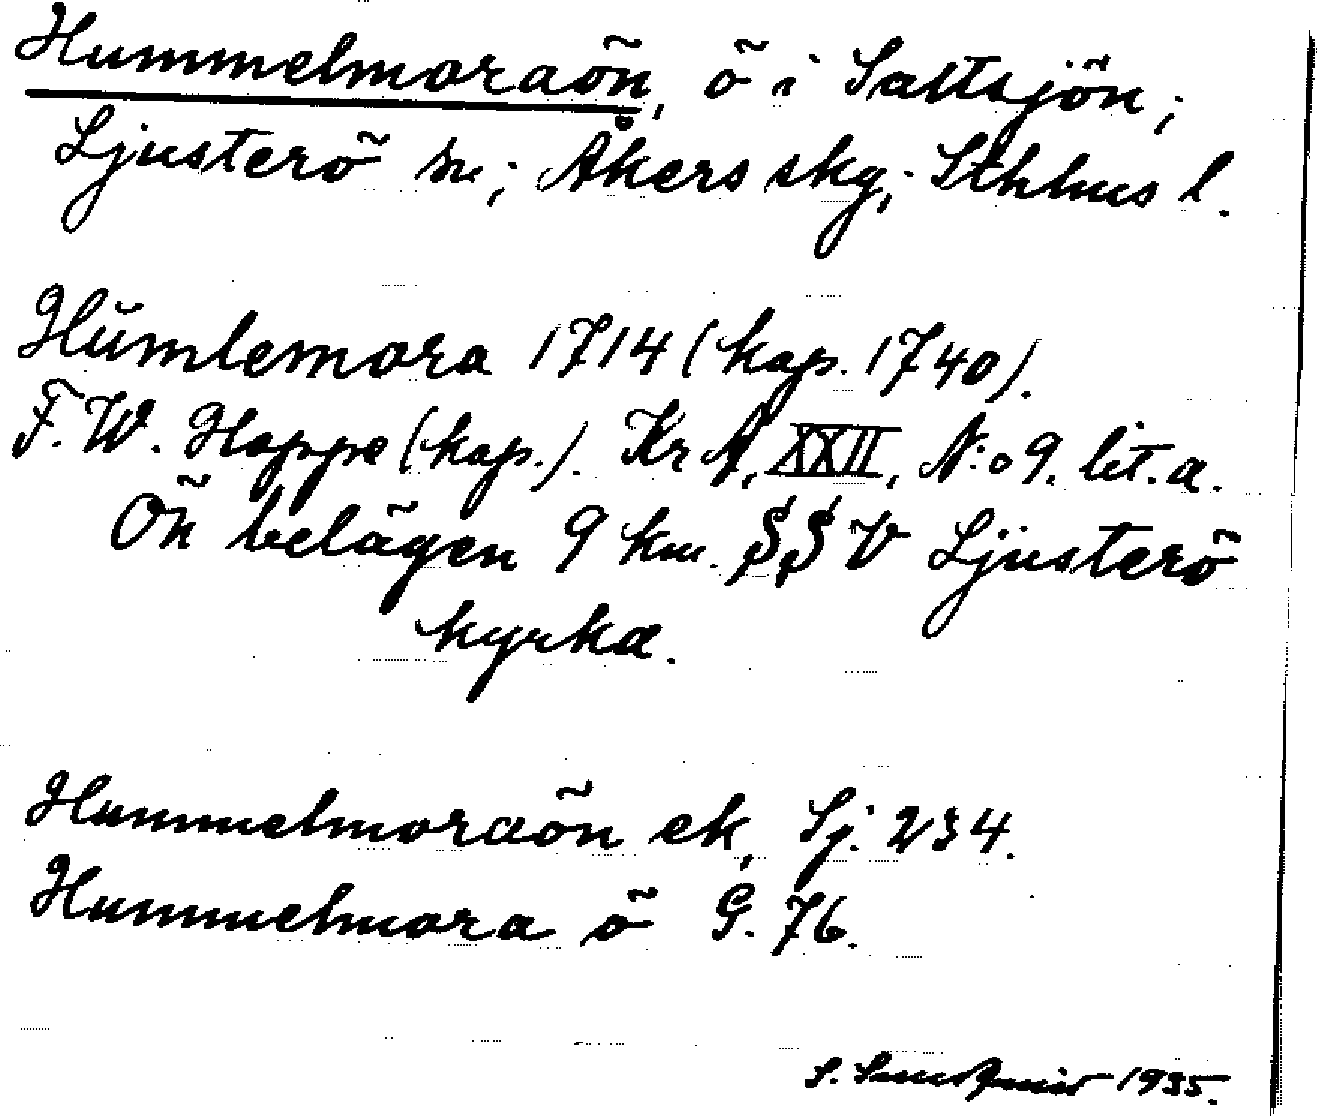 Hummelmoraön, ö i Saltsjön;
Ljusterö sn; Åkers skg; Sthlms l.
Hŭmlemora 1714 (kap. 1740).
F. W. Hoppe (kap.). Kr A, XXII, N:o 9. lit. a.
Ön belägen 9 km. SSV Ljusterö
kyrka.
Hummelmoraön ek, Sj. 234.
Hummelmora ö G. 76.
S. 1935.